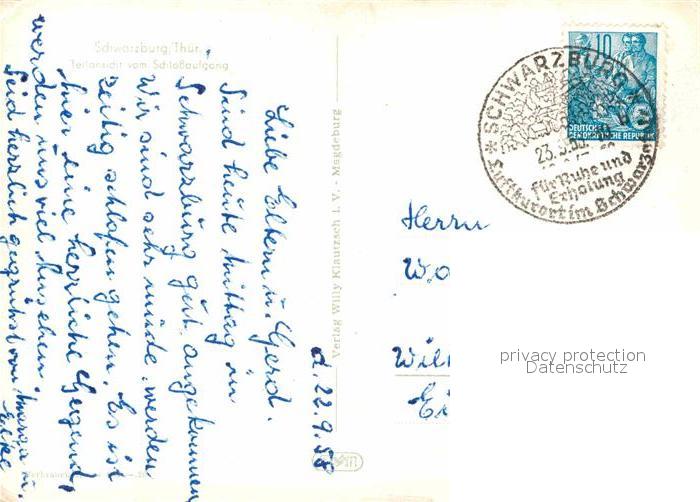 Schwarzburg/Thür.
Teilansicht vom Schloßaufgang
d. 22. 9. 58
Liebe Eltern u. Gerd.
Sind heute Mittag in
Schwarzburg gut angekommen
Wir sind sehr müde, werden
zeitig schlafen gehen. Es ist
hier eine herrliche Gegend,
werden uns viel ansehen.
Seid herzlich gegrüsst von Marga u.
Verlag Willy Klautzsch I. V. - Magdeburg
10
DEUTSCHE
DEMOKRATISCHE REPUBLIK
* SCHWARZBURG *
23.9.58
für Ruhe und
Erholung
Luftkurort im Schwarza
Herrn
W
privacy protection
Datenschutz